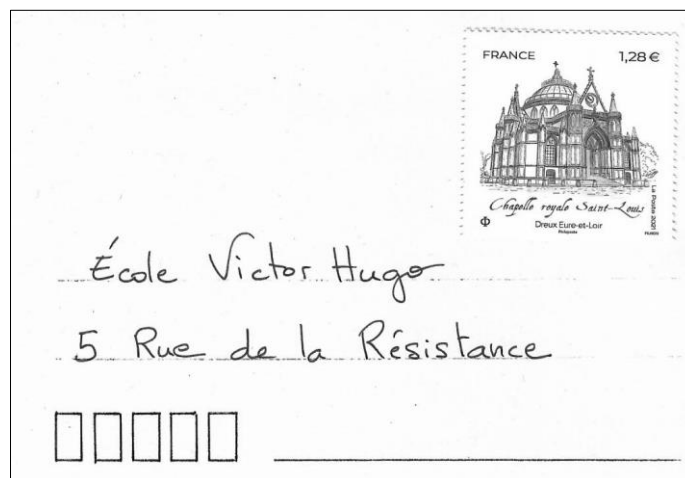 FRANCE 1,28 €
Chapelle royale Saint-Louis
Dreux Eure-et-Loir
La Poste 2021
École Victor Hugo
5 Rue de la Résistance